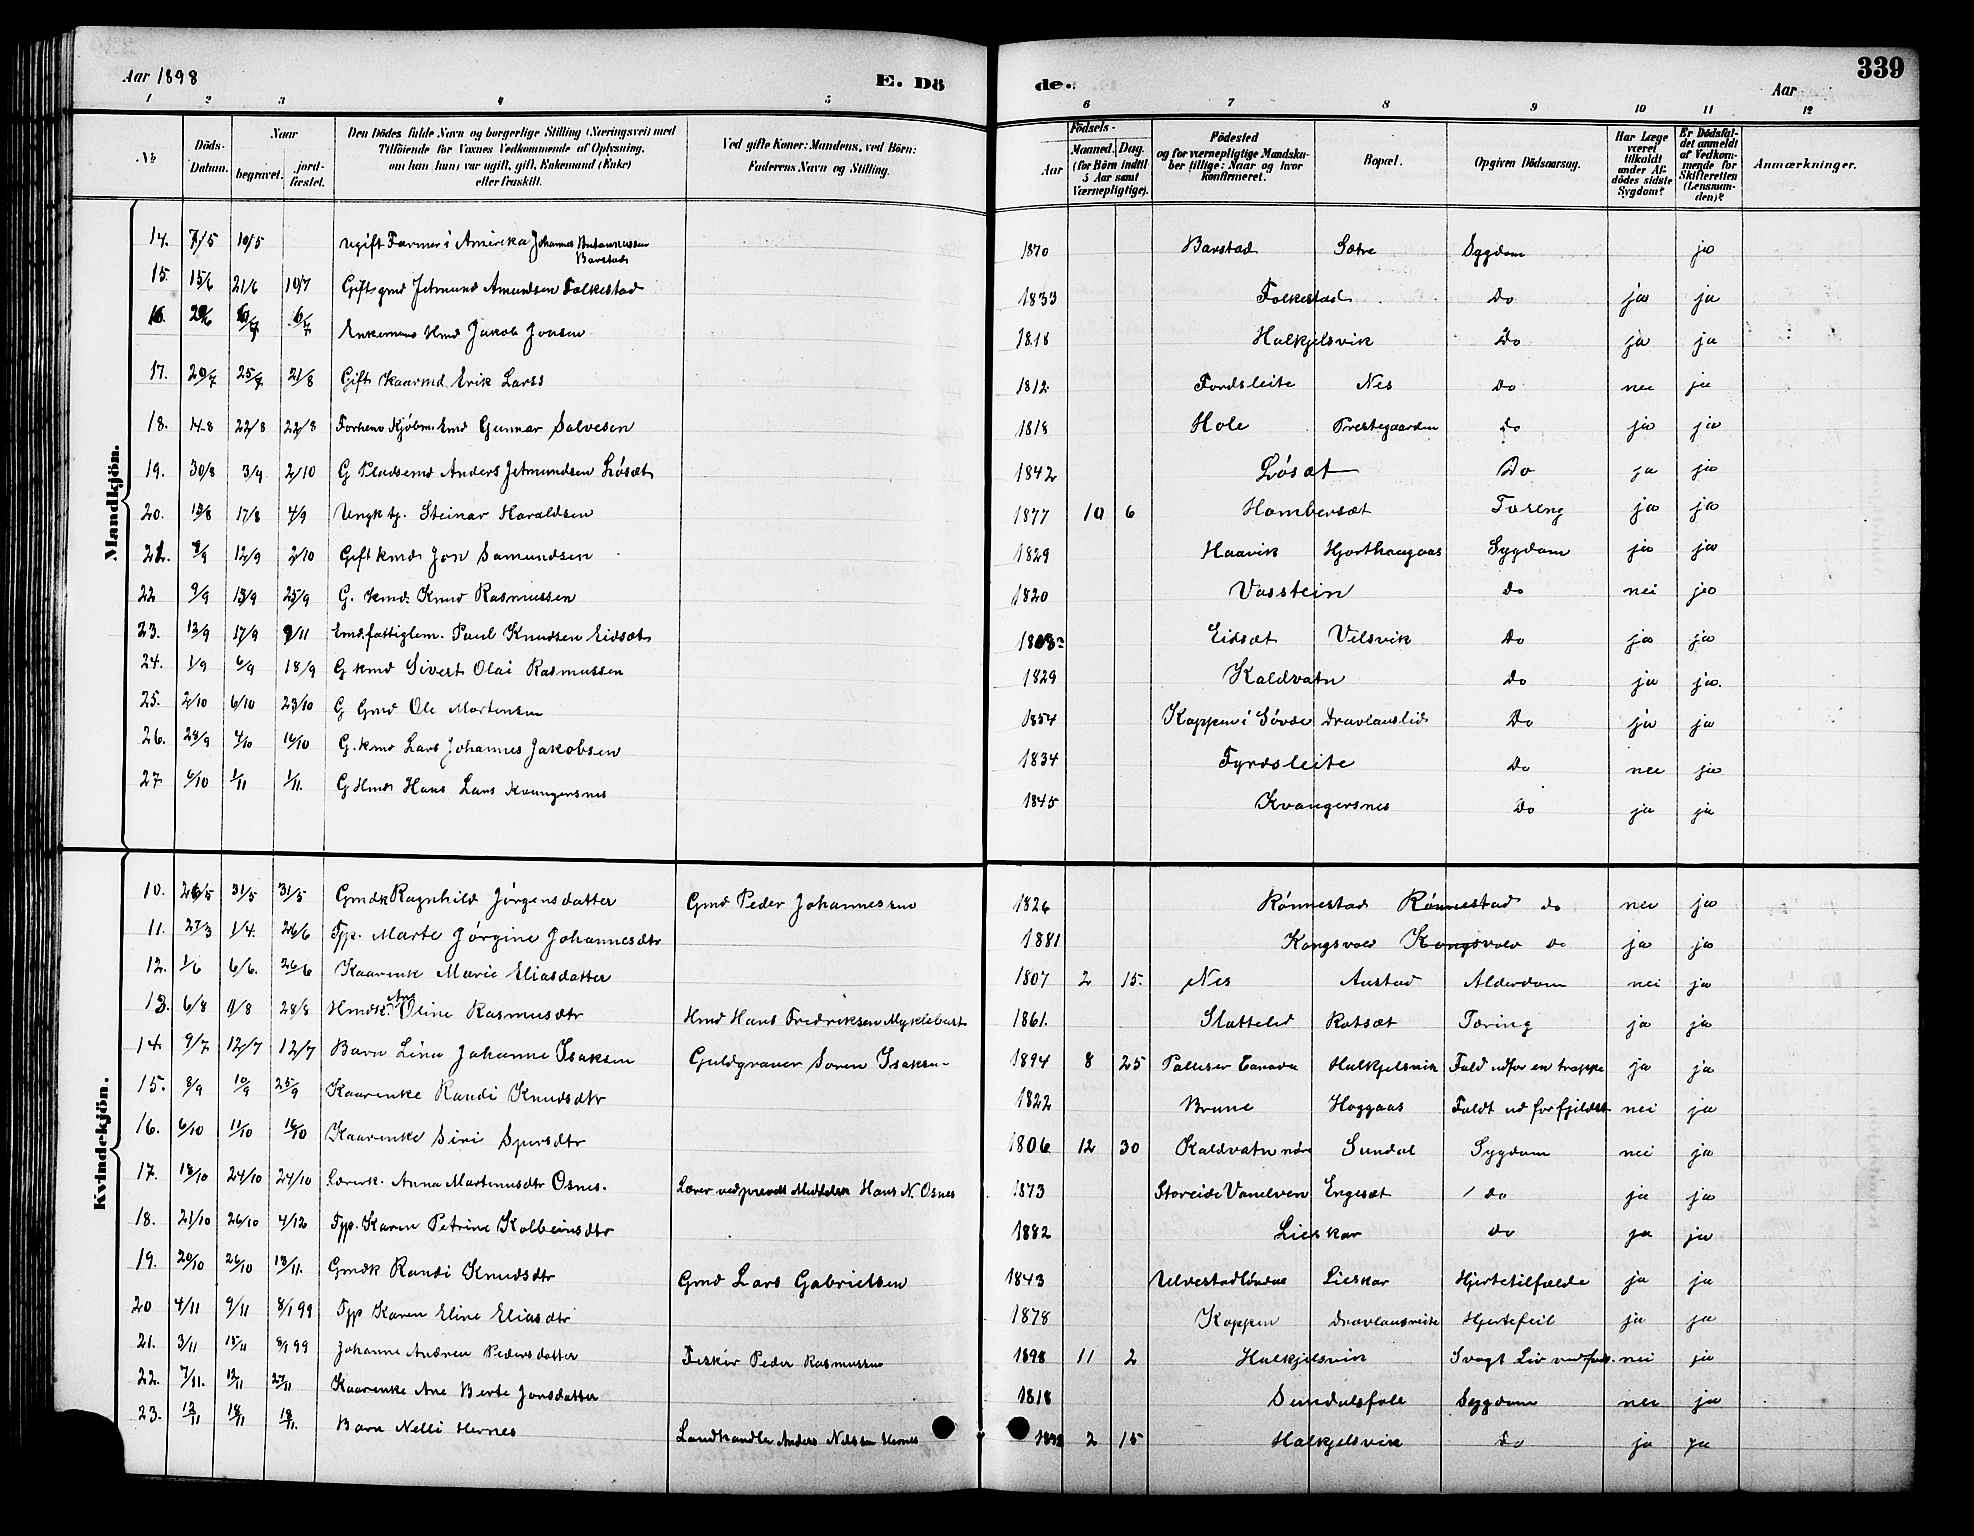 Aar 1898
E. Dö
de.
Aar
339
1 2 3 4 5 6 7 8 9 10 11 12
No
Döds-Datum.
Naar
begravet.
jordfæstet.
Den Dödes fulde Navn og borgerlige Stilling (Næringsvei) med
Tilföiende for Voxnes Vedkommende af Oplysning,
om han (hun) var ugift, gift, Enkemand (Enke)
eller fraskilt.
Ved gifte Koner: Mandens, ved Börn:
Faderens Navn og Stilling.
Födsels-
Aar
Maaned. Dag.
(for Börn indtil
5 Aar samt
Værnepligtige).
Födested
og for værnepligtige Mandska-
ber tillige: Naar og hvor
konfirmeret.
Bopæl.
Opgiven Dödsaarsag.
Har Læge
været
tilkaldt
under Af-
dödes sidste
Sygdom?
Er Dödsfal-
det anmeldt
af Vedkom-
mende for
Skifteretten
(Lensman-
den)?
Anmærkninger.
Mandkjön.
14. 7/5 10/5 Ugift Farmer i Amerika Johannes Barstad 1870 Barstad Sætre Sygdom ja
15. 15/6 21/6 10/7 Gift gmd Jetmund Amundsen Folkestad 1833 Folkestad Do ja ja
16. 6/7 Enkemand Hmd Jakob Jonsen 1818 Halkjelsvik Do ja ja
17. 20/7 25/7 21/8 Gift Kaarmd. Erik Larss 1812 Fordsleite Nes Do nei ja
18. 14-8 22/8 22/8 Forhenv Kjøbm. Emd Gunnar Salvesen 1818 Hole Prestegaarden Do ja ja
19. 30/8 3/9 2/10 G Pladsemd Anders Jetmundsen Løsæt 1842 Løsæt Do ja ja
20. 13/8 17/8 4/9 Ungk tj. Steinar Haraldsen 1877 10 6 Hambersæt Tæreng ja ja
21. 8/9 12/9 2/10 Gift kmd Jon Samundsen 1829 Haavik Hjorthaugaas Sygdom ja ja
22 9/9 13/9 25/9 G. Kmd. Knud Rasmussen 1820 Vasstein Do nei ja
23. 12/9 17/9 9/11 Emd. fattiglem. Paul Knudsen Eidsæt Eidsæt Velsvik Do ja ja
24. 1/9 6/9 18/9 G kmd Sivert Olai Rasmussen 1829 Kaldvatn Do ja ja.
25. 2/10 6/10 23/10 G Gmd Ole Martensen 1854 Koppen i Søvde Dravlauslid Do ja ja
26. 28/9 4/10 16/10 G. kmd Lars Johannes Jakobsen 1834 Fyrdsleite Do nei ja
27 6/10 1/11 1/11. G Hmd Hans Lars Kvangersnes 1845 Kvangersnes Do ja ja
Kvindekjön.
10. 26/5 31/5 31/5 Gmdk Ragnhild Jørgensdatter Gmd Peder Johannessen 1826 Rønnestad Rønnestad do nei ja
11. 27/3 1/4. 26/6 Tjp. Marte Jørgine Johannesdtr 1881 Kongsvold Kongsvold Do ja ja
12. 1/6 6/6. 26/6 Kaarenk Marie Eliasdatter 1807 2 15. Nes Aastad Alderdom nei ja
13. 6/8 11/8 28/8 Hmdk. Ane Oline Rasmusdtr Hmd Hans Fredriksen Myklebust 1861. Slettelid Ratsæt Tæring ja ja
14. 9/7 12/7 12/7 Barn Lina Johanne Isaksen Guldgraver Soren Isaksen 1894 8 25 Palliser Canada Halkjelsvik Fald udfor en trappe ja ja
15. 8/9 10/9 25/9 Kaarenke Randi Knudsdtr 1822 Brune Hoggaas Faldt ud for fjeldet nei ja
16. 6/10 11/10 16/10 Kaarenke Siri Spersdtr 1806 12 30 Kaldvatn nøre Sundal Sygdom nei ja
17. 18/10 24/10 24/10 Lærerk. Anna Martinusdtr Osnes. Lærer ved Hans N. Osnes 1873 Storeide Vanelven Engesæt do ja ja
18. 21/10 26/10 4/12 Tjp. Karen Petrine Kolbeinsdtr 1882 Lieskar do ja ja
19. 20/10 26/10 13/11. Gmdk Randi Knudsdtr Gmd Lars Gabrielsen 1843 Ulvestad Lieskar Hjertetilfælde ja ja
20 4/11 9/11 8/1 99 Tjp Karen Eline Eliasdtr 1878 Koppen Dravlausreite Hjertefeil ja ja
21. 3/11 15/11 8/1 99 Johanne Andrea Pedersdatter Fisker Peder Rasmussen 1898 11 2 Halkjelsvik Svagt Liv ved føds. nei ja
22. 7/11. 12/11 27/11 Kaarenke Ane Berte Jonsdatter 1818 Sundalsfole Sygdom nei ja
23. 12/11 18/11 18/11. Barn Nelli Hernes Landhandler Anders Nilssen Hernes 1898 2 15 Halkjelsvik Do ja ja